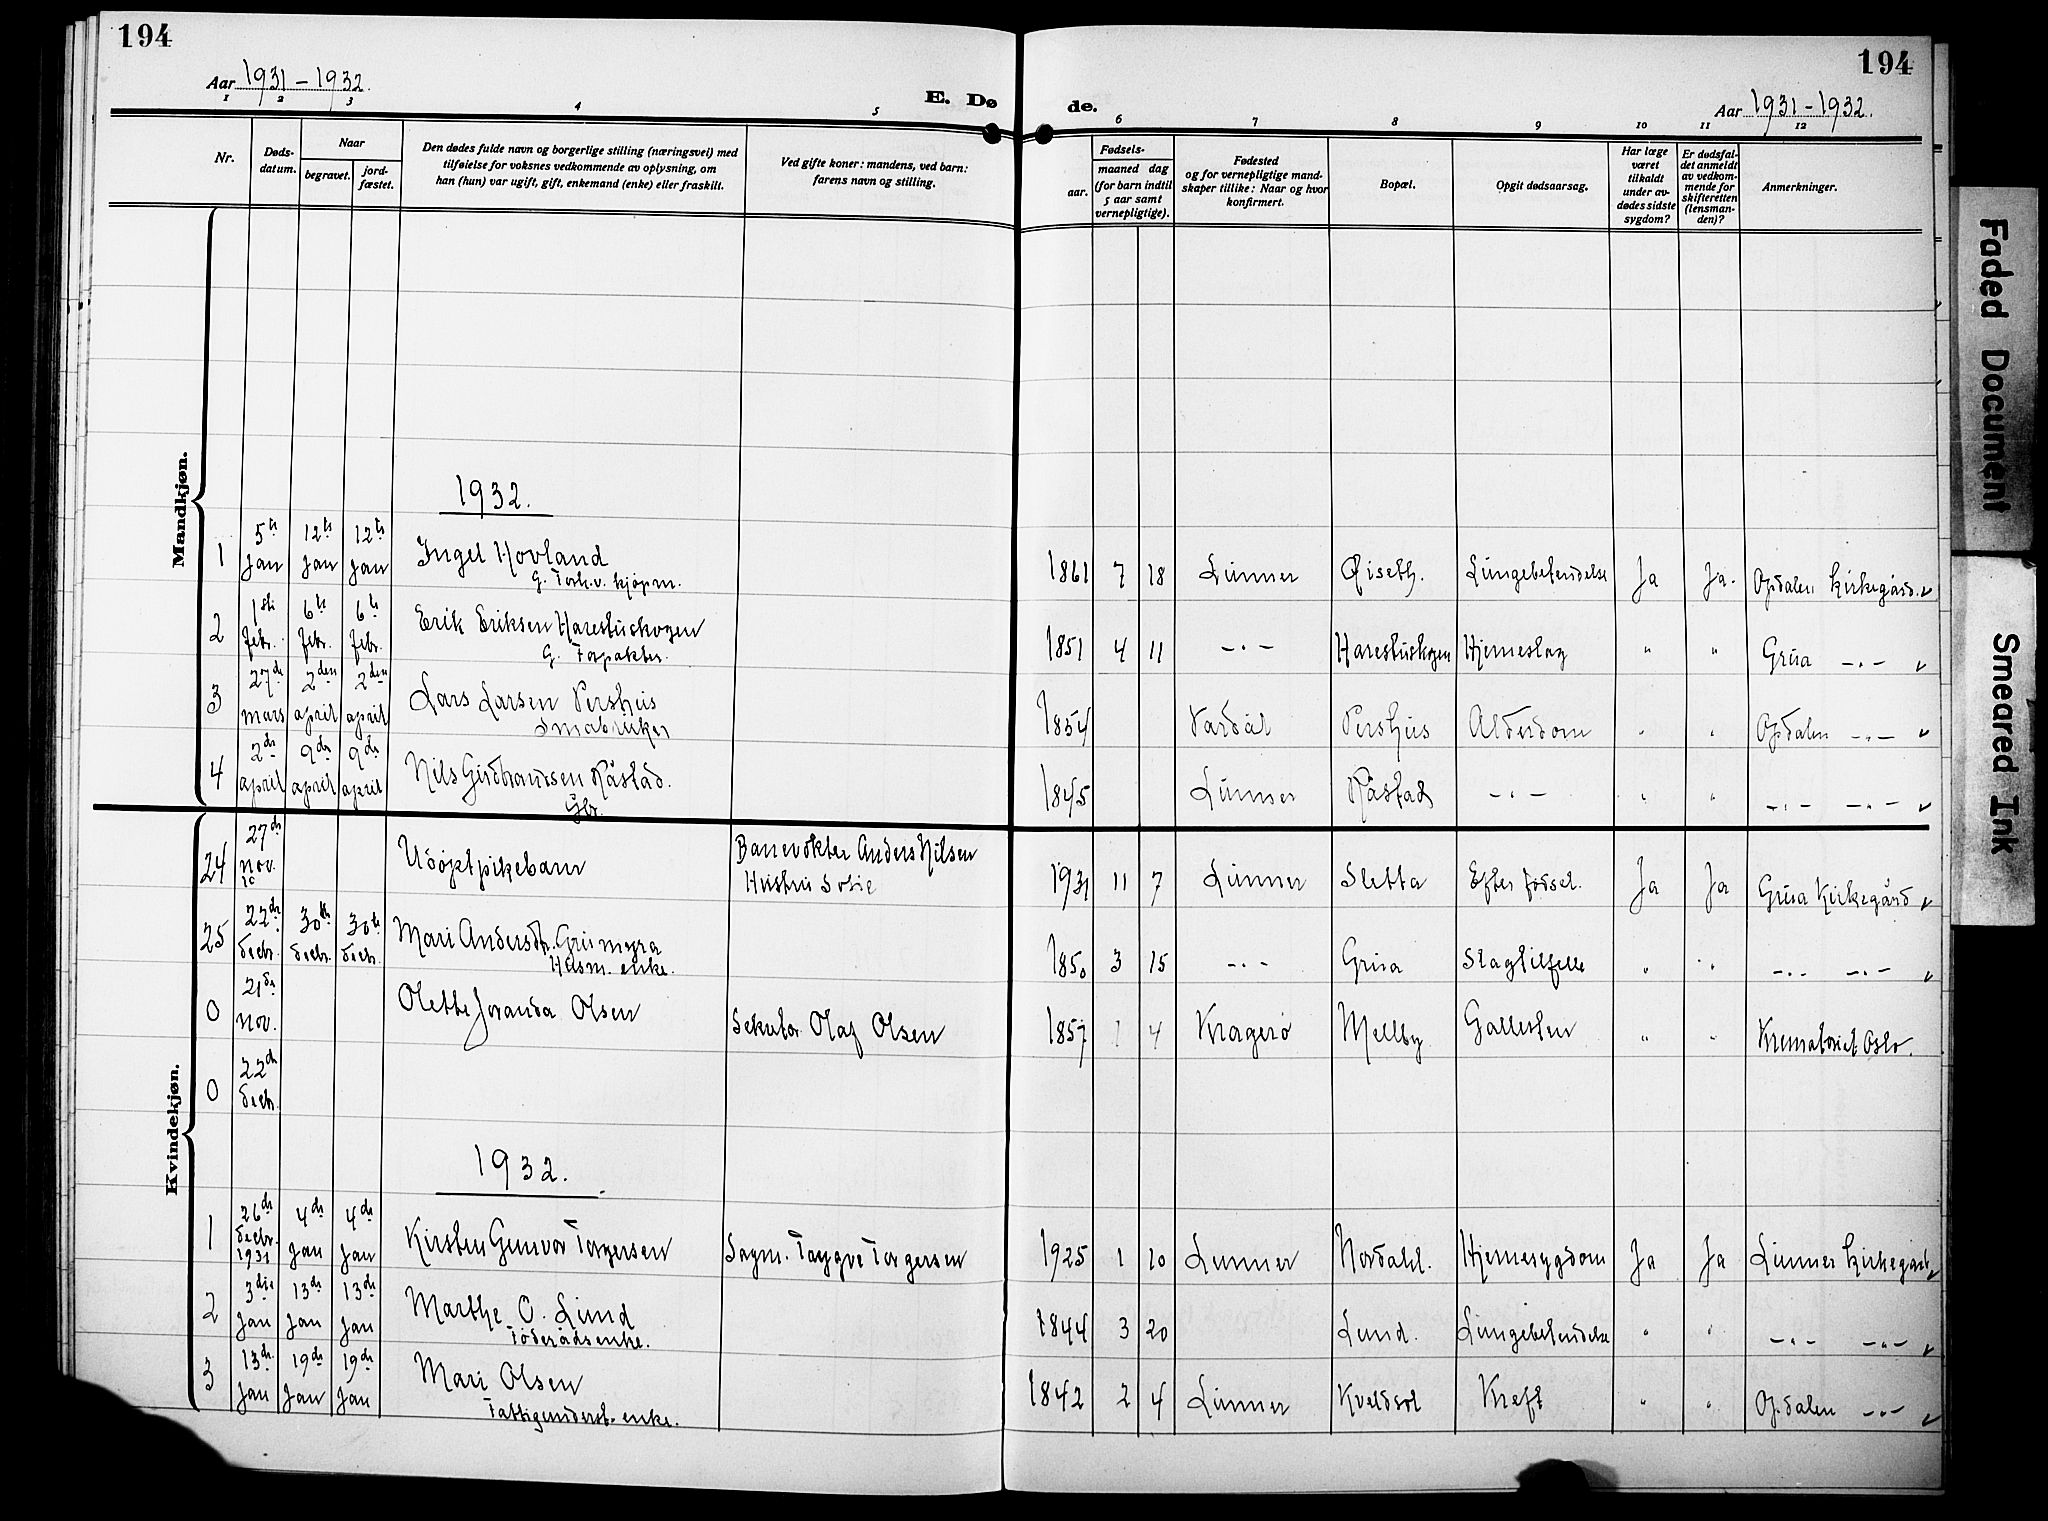 194
194
Aar 1931 - 1932.
E. Dø
de.
Aar 1931 - 1932.
1 2 3 4 5 6 7 8 9 10 11 12
Nr.
Døds-
datum.
Naar
begravet.
jord-
fæstet.
Den dødes fulde navn og borgerlige stilling (næringsvei) med
tilføielse for voksnes vedkommende av oplysning, om
han (hun) var ugift, gift, enkemand (enke) eller fraskilt.
Ved gifte koner: mandens, ved barn:
farens navn og stilling.
Fødsels-
aar.
maaned dag
(for barn indtil
5 aar samt
vernepligtige).
Fødested
og for vernepligtige mand-
skaper tillike: Naar og hvor
konfirmert.
Bopæl.
Opgit dødsaarsag.
Har læge
været
tilkaldt
under av-
dødes sidste
sygdom?
Er dødsfal-
det anmeldt
av vedkom-
mende for
skifteretten
(lensman-
den)?
Anmerkninger.
Mandkjøn.
1932.
1 5te Jan 12te Jan 12te Jan Ingel Hovland 1861 7 18 Lunner Øiseth. Lungebetendelse Ja Ja. Opdalen Kirkegård. v
2 1ste febr. 6te febr. 6te febr. Erik Eriksen Harestuskogen
G. Forpakter.
1851 4 11 -"- Harestuskogen Hjerneslag " " Grua -"- v
3 27de mars 2den april 2den april Lars Larsen Pershus
Småbruker
1854 Vardal Pershus Alderdom " " Opdalen -"- v
4 2de april 9de april 9de april Nils Gudbrandsen Råstad.
Gbr.
1845 Lunner Råstad -"- " " -"- -"- v
Kvindekjøn.
24 27de nov. Udøpt pikebarn Banevokter Anders Nilsen
Hustru Sofie
1931 11 7 Lunner Sletta Efter fødsel. Ja Ja Grua Kirkegård v
25 22de decbr. 30te decbr. 30te decbr. Mari Andersdtr. Gruemyra
Husm. enke.
1850 3 15 -"- Grua Slagtilfelle " " -"- -"- v
0 21de nov. Olette Joranda Olsen Olaf Olsen 1857 1 4 Kragerø Melby Gallesten " " Krematoriet Oslo.
0 22de decbr.
1932.
1 26de decbr. 1931 4de Jan 4de Jan Kirsten Gunvor Torgersen Sagm. Trygve Torgersen 1925 1 10 Lunner Nordahl. Hjernesygdom Ja Ja Lunner Kirkegård v
2 3die Jan 13de Jan 13de Jan Marthe O. Lund
Føderådsenke.
1844 3 20 Lund. Lungebetendelse " " -"- -"- v
3 13de Jan 19de Jan 19de Jan Mari Olsen
Fattigunderst. enke.
1842 2 4 Lunner Kveldsol Kreft " " Opdalen -"- v
Faded Document
Smeared Ink